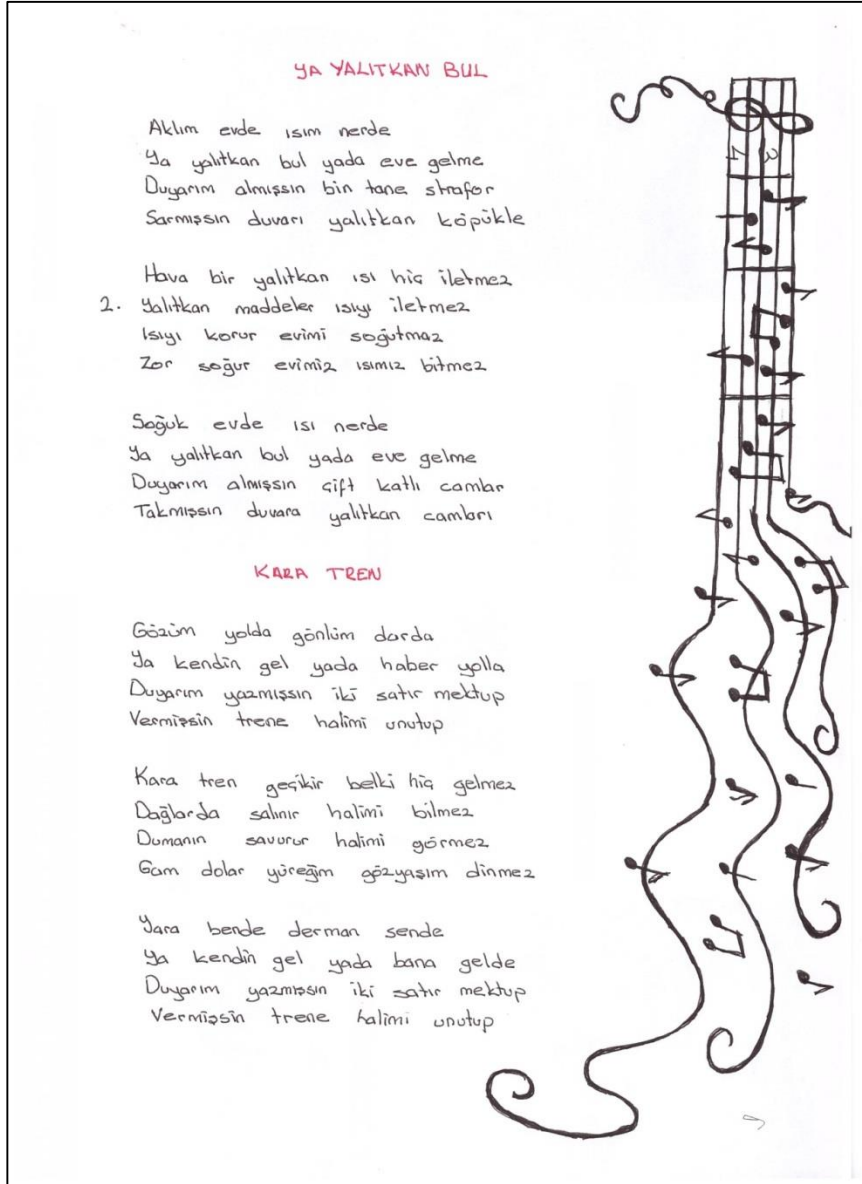 YA YALITKAN BUL
Aklım evde ısım nerde
Ya yalıtkan bul yada eve gelme
Duyarım almışsın bin tane strafor
Sarmışsın duvarı yalıtkan köpükle
Hava bir yalıtkan ısı hiç iletmez
2. Yalıtkan maddeler ısıyı iletmez
Isıyı korur evimi soğutmaz
Zor soğur evimiz ısımız bitmez
Soğuk evde ısı nerde
Ya yalıtkan bul yada eve gelme
Duyarım almışsın çift katlı camlar
Takmışsın duvara yalıtkan camları
KARA TREN
Gözüm yolda gönlüm darda
Ya kendin gel yada haber yolla
Duyarım yazmışsın iki satır mektup
Vermişsin trene halimi unutup
Kara tren geçikir belki hiç gelmez
Dağlarda salınır halimi bilmez
Dumanın savurur halimi görmez
Gam dolar yüreğim gözyaşım dinmez
Yara bende derman sende
Ya kendin gel yada bana gelde
Duyarım yazmışsın iki satır mektup
Vermişsin trene halimi unutup
3
4